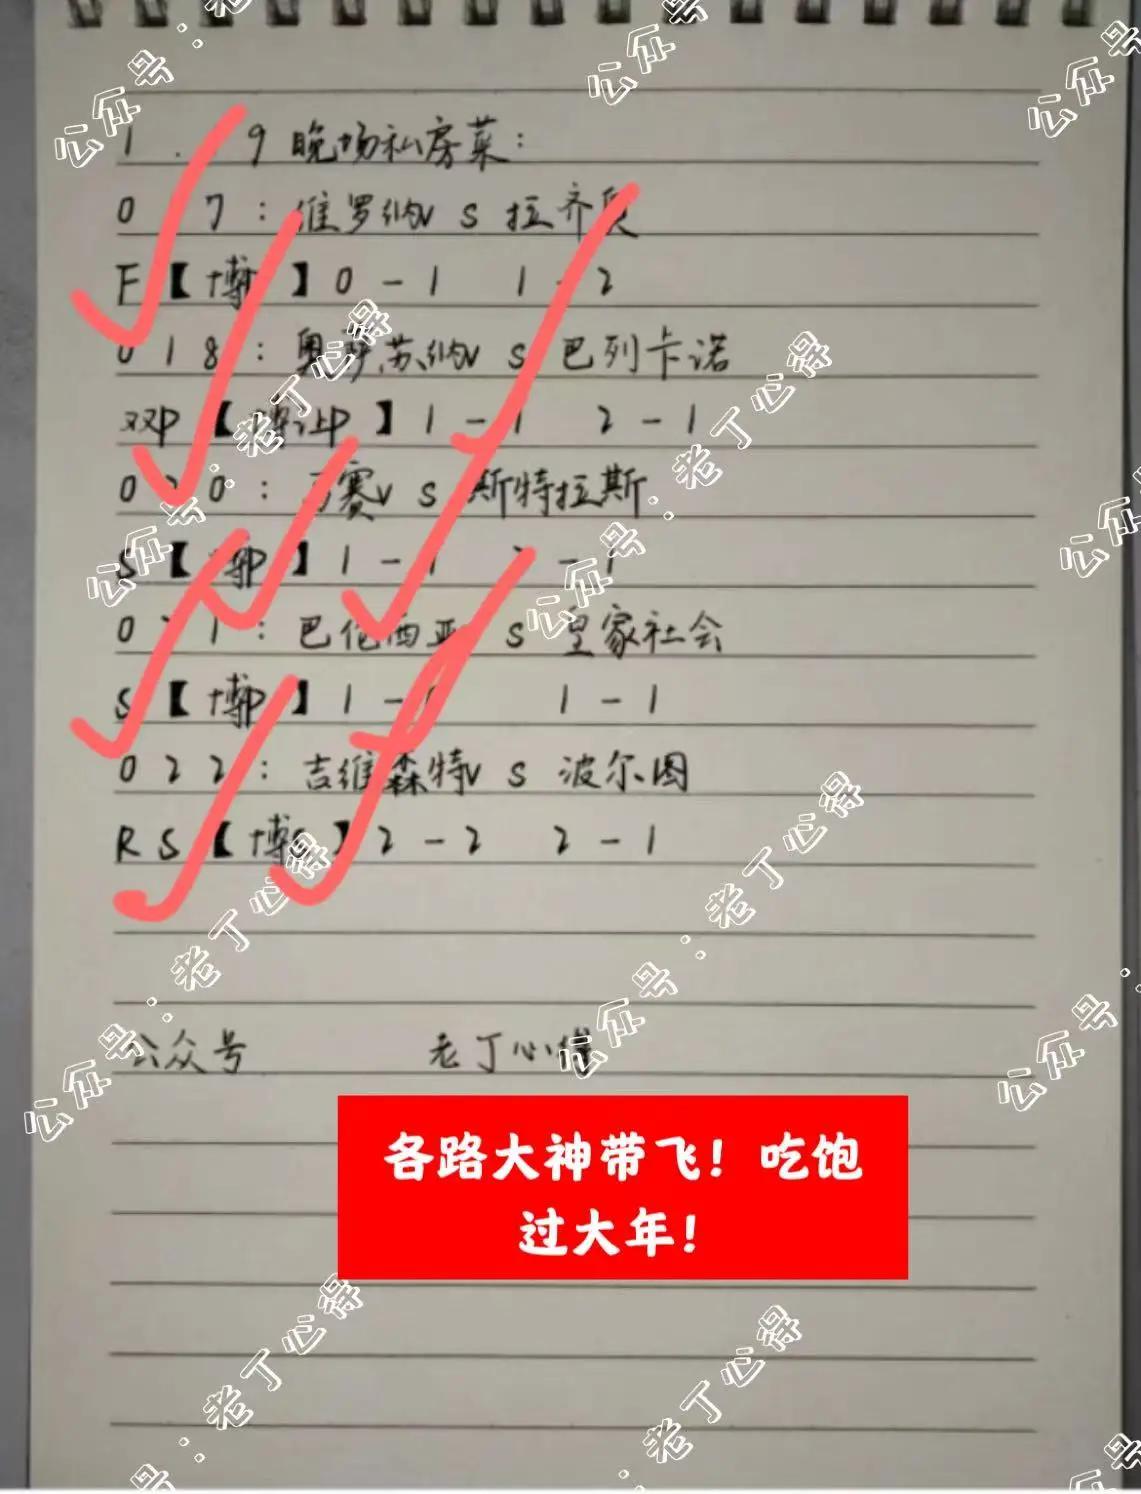 1.19晚场私房菜:
017:维罗纳vs拉齐奥
F【博】0-1 1-2
018:奥萨苏纳vs巴列卡诺
双P【博让P】1-1 2-1
020: 赛vs斯特拉斯
S【博P】1-1 -1
021:巴伦西亚vs皇家社会
S【博P】1- 1-1
022:吉维森特vs波尔图
RS【博 】2-2 2-1
公众号 老丁心得
各路大神带飞!吃饱
过大年!
公众号:老丁心得
公众号:老丁心得
公众号:老丁心得
公众号:老丁心得